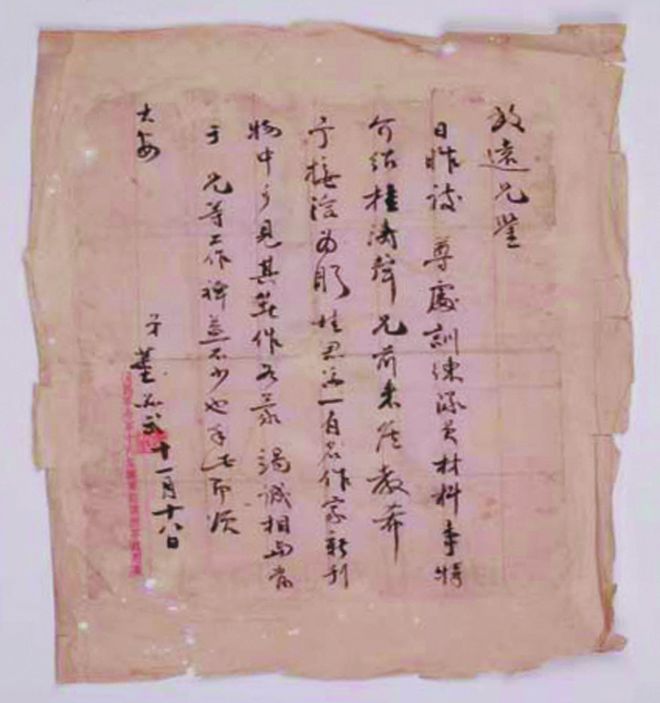 致遠兄鑒
日昨談 尊處訓練隊員材料事特
介紹桂濤聲兄前來候教希
予接洽為盼 桂君為一有名作家新刊
物中多見其著作如蒙 竭誠相與當
于 兄等工作裨益不少也手此即頌
大安
弟 董必武 十一月十八日